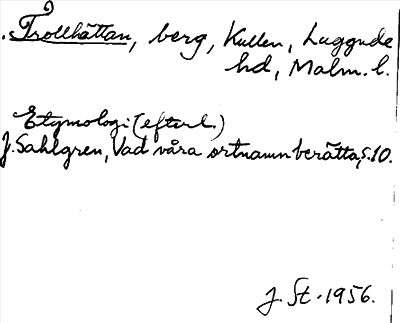 Trollhättan, berg, Kullen, Luggude
hd, Malm. l.
Etymologi (efterl.)
J. Sahlgren, Vad våra ortnamn berätta, s. 10.
J. St. 1956.